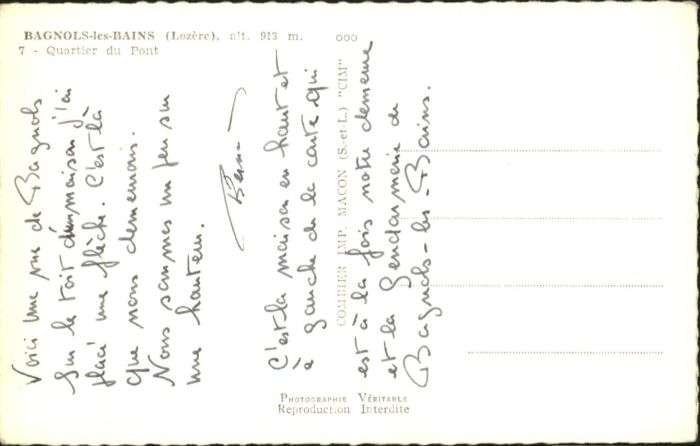 BAGNOLS-les-BAINS (Lozère), alt. 913 m. ooo
7 - Quartier du Pont
Voici une vue de Bagnols
Sur le toit d'une maison j'ai
placé une flèche. C'est là
que nous demeurons.
Nous sommes un peu sur
une hauteur.
C'est la maison en haut et
à gauche de la carte qui
est à la fois notre demeure
et la Gendarmerie de
Bagnols-les-Bains.
COMBIER IMP. MACON (S.-et-L.) "CIM"
Photographie Véritable
Reproduction Interdite